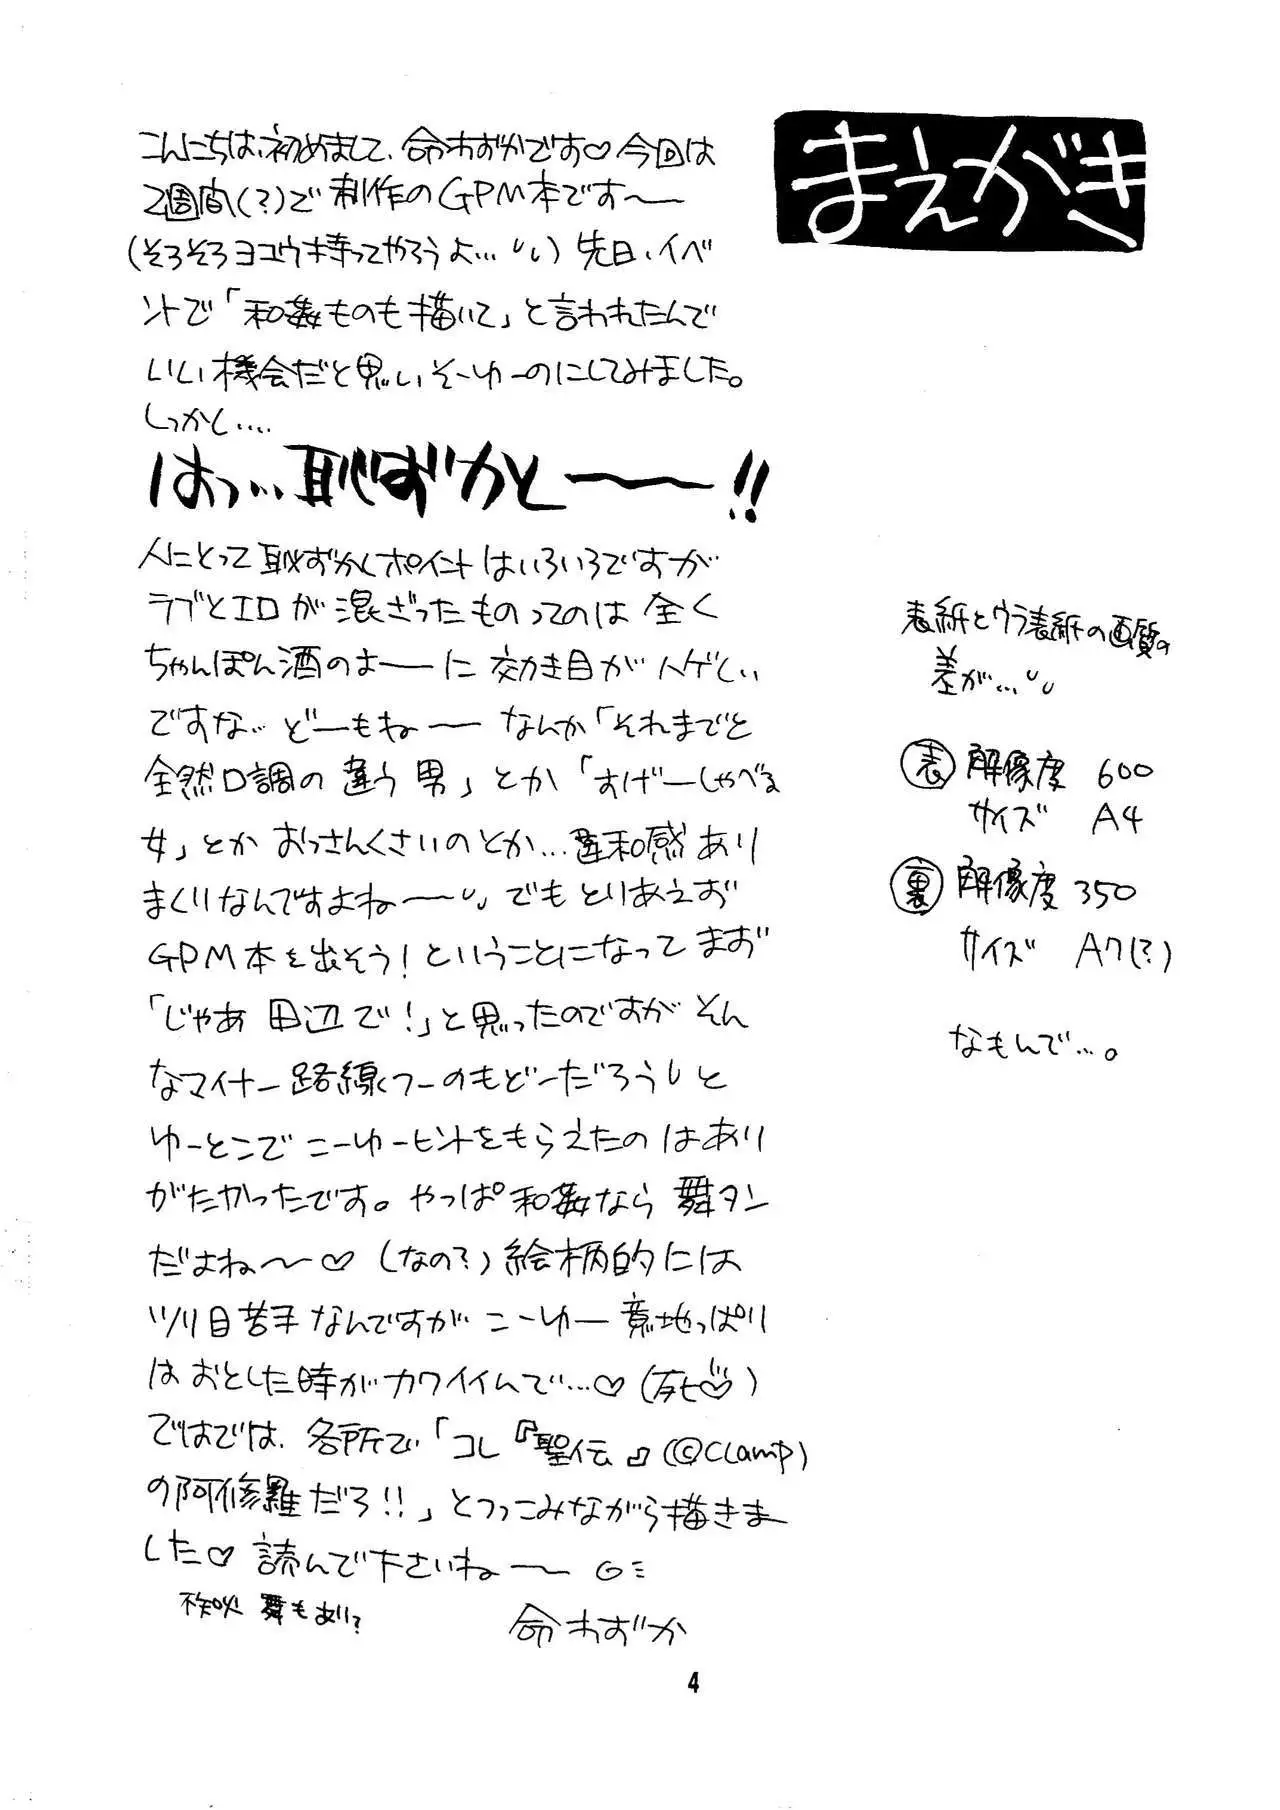 まえがき
こんにちは、初めまして、命わずかです♡今回は
2週間(?)で制作のGPM本です〜〜
(そろそろヨユウ持ってやろうよ…) 先日、イベ
ントで「和姦ものも描いて」と言われたんで
いい機会だと思いそーゆーのにしてみました。
しっかし‥‥
はっ…恥ずかしー〜〜!!
人にとって恥ずかしポイントはいろいろですが
ラブとエロが混ざったものってのは全く
ちゃんぽん酒のよーーに効き目がハゲしい
ですな… どーもねーー なんか「それまでと
全然口調の違う男」とか「すげーしゃべる
女」とかおっさんくさいのとか…違和感あり
まくりなんですよね〜〜 でもとりあえず
GPM本を出そう!ということになってまず
「じゃあ田辺で!」と思ったのですがそん
なマイナー路線くフーのもどーだろうと
ゆーとこでこーゆーヒントをもらえたのはあり
がたかったです。やっぱ和姦なら舞タン
だよね〜〜♡(なの?)絵柄的には
ツリ目苦手なんですがこーゆー意地っぱり
はおとした時がカワイイんで…♡(死♡)
ではでは、各所で「コレ『聖伝』(©CLAMP)
の阿修羅だろ!!」とつっこみながら描きま
した♡読んで下さいね〜〜
舞もあり?
命わずか
表紙とウラ表紙の画質の
差が…
表 解像度 600
サイズ A4
裏 解像度 350
サイズ A7(?)
なもんで…。
4